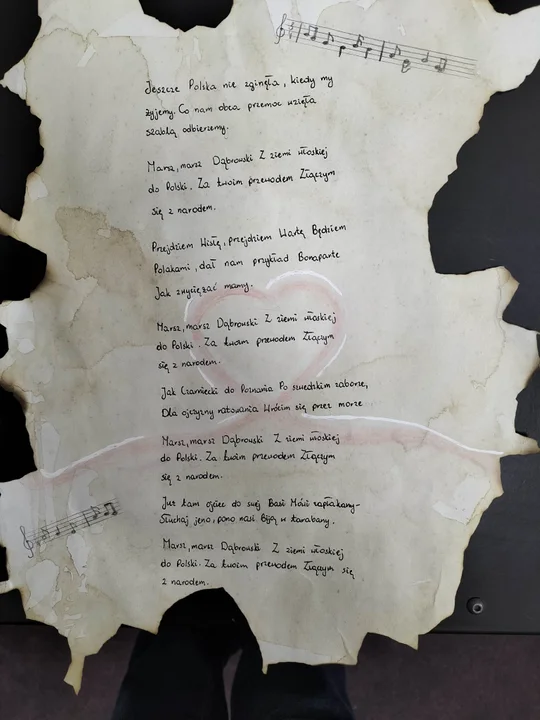 Jeszcze Polska nie zginęła, kiedy my
żyjemy. Co nam obca przemoc wzięła
szablą odbierzemy.
Marsz, marsz Dąbrowski Z ziemi włoskiej
do Polski. Za twoim przewodem Złączym
się z narodem.
Przejdziem Wisłę, przejdziem Wartę Będziem
Polakami, dał nam przykład Bonaparte
Jak zwyciężać mamy.
Marsz, marsz Dąbrowski Z ziemi włoskiej
do Polski. Za twoim przewodem Złączym
się z narodem.
Jak Czarniecki do Poznania Po szwedzkim zaborze,
Dla ojczyzny ratowania Wrócim się przez morze
Marsz, marsz Dąbrowski Z ziemi włoskiej
do Polski. Za twoim przewodem Złączym
się z narodem.
Już tam ojciec do swej Basi Mówi zapłakany-
Słuchaj jeno, pono nasi Biją w tarabany.
Marsz, marsz Dąbrowski Z ziemi włoskiej
do Polski. Za twoim przewodem Złączym się
z narodem.